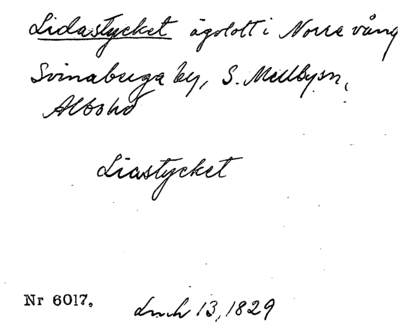 Lidastycket ägolott i Norre vång
Svinaberga by, S. Mellbysn,
Albo hd
Liastycket
Nr 6017. 13, 1829